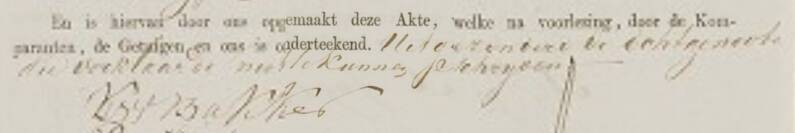 En is hiervan door ons opgemaakt deze Akte, welke na voorlezing, door de Kom-
paranten, de Getuigen en ons is onderteekend. Uitgezonderd de echtgenoote
die verklaarde niet te kunnen schryven